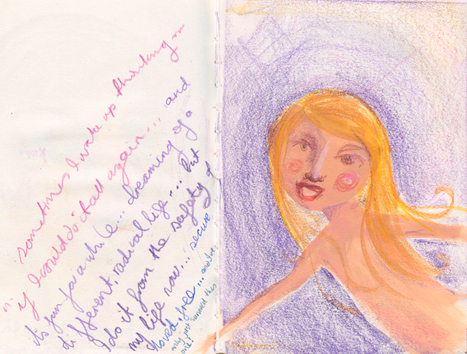 sometimes I wake up thinking
if I would do it all again... and
it's fun for a while... dreaming of a
different, radical life... but
I do it from the safety of
my life now... secure
loved, free